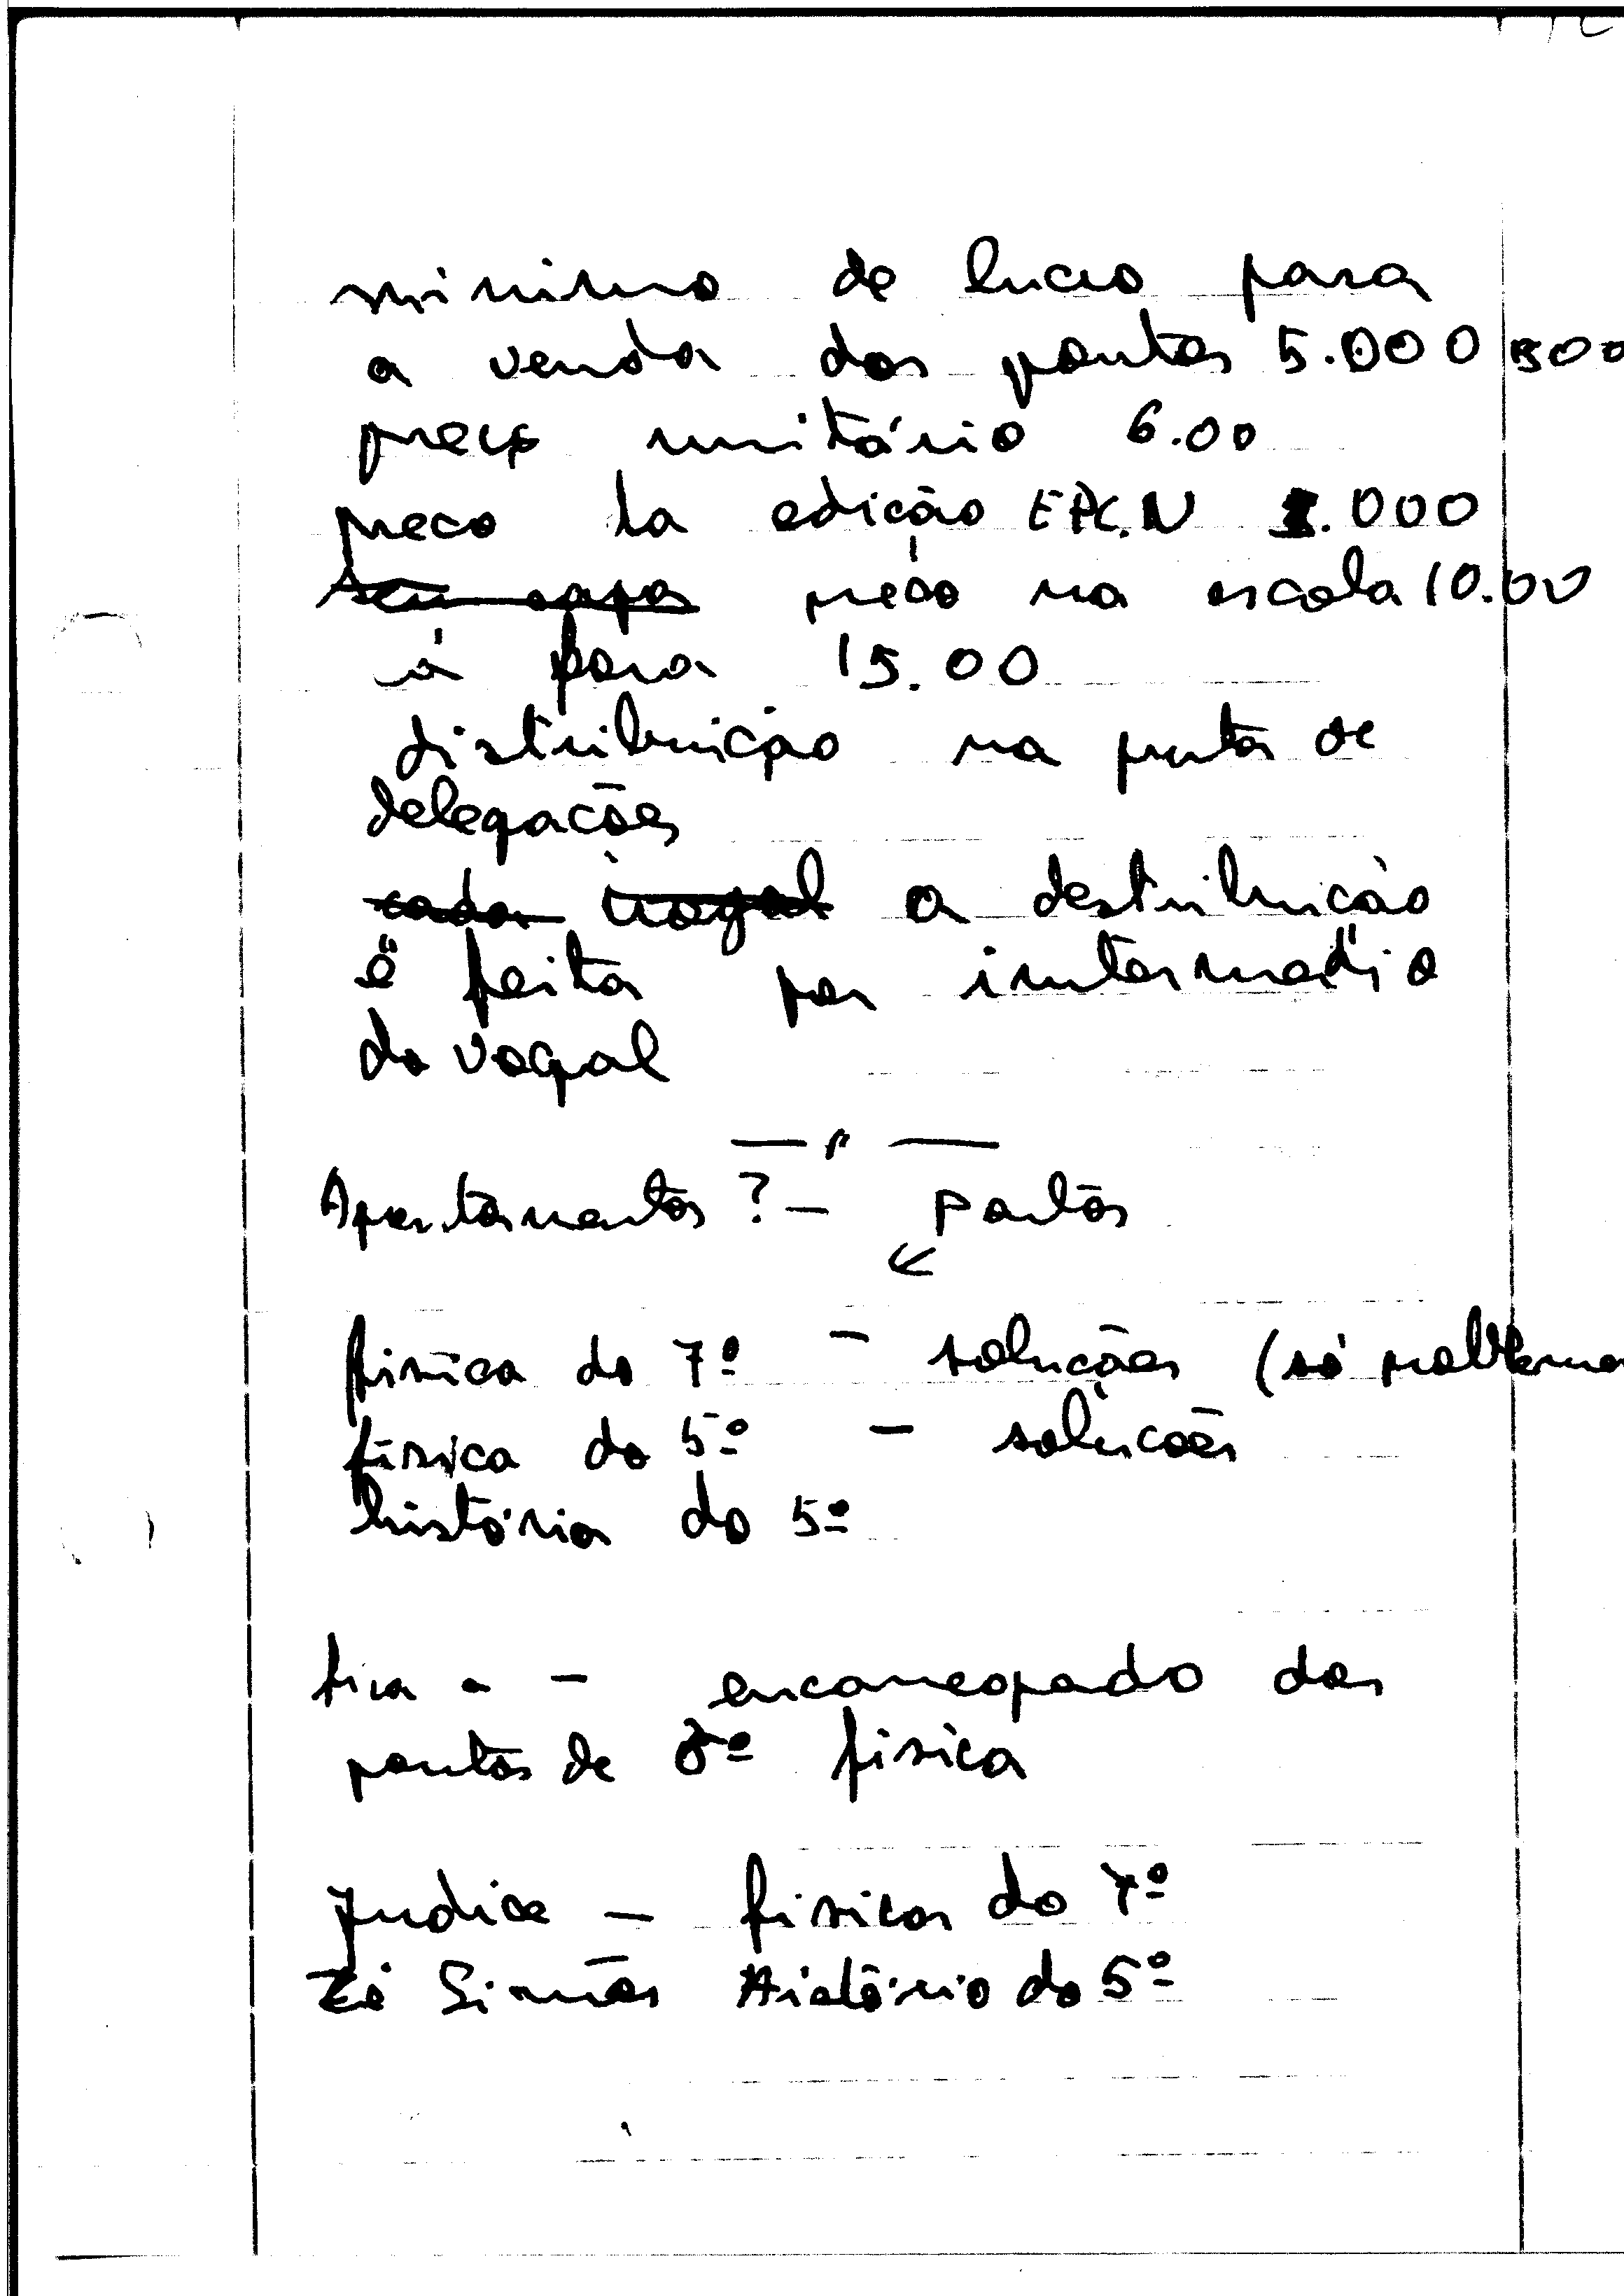 minimo de lucro para
a venda dos pontos 5.000 500
preço unitário 6.00
preco da edição E.P.C.N .000
sem capa preço na escola 10.00
é para 15.00
distribuição na porta de
delegações
cada vogal a destribuição
é feita por intermedio
do vogal
Apontamentos? - Pontos
fisica do 7º - soluções (só problema
fisica do 5º - soluções
história do 5º
fica a - encarregado dos
pontos de 5º fisica
Judice - fisica do 7º
Zé Simões História do 5º